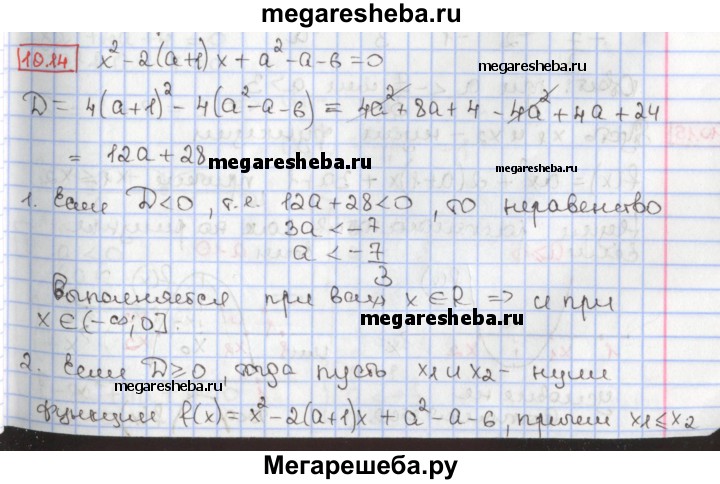 megaresheba.ru
10.14 x² - 2(a+1)x + a² - a - 6 = 0
megaresheba.ru
D = 4(a+1)² - 4(a² - a - 6) = 4a² + 8a + 4 - 4a² + 4a + 24
= 12a + 28
megaresheba.ru
1. Если D<0, т.е. 12a + 28 < 0, то неравенство
3a < -7
a < -7/3
выполняется при всех x ∈ R => и при
x ∈ (-∞; 0].
megaresheba.ru
2. Если D ≥ 0, тогда пусть x1 и x2 - нули
megaresheba.ru
функции f(x) = x² - 2(a+1)x + a² - a - 6, причем x1 ≤ x2
Мегарешеба.ру